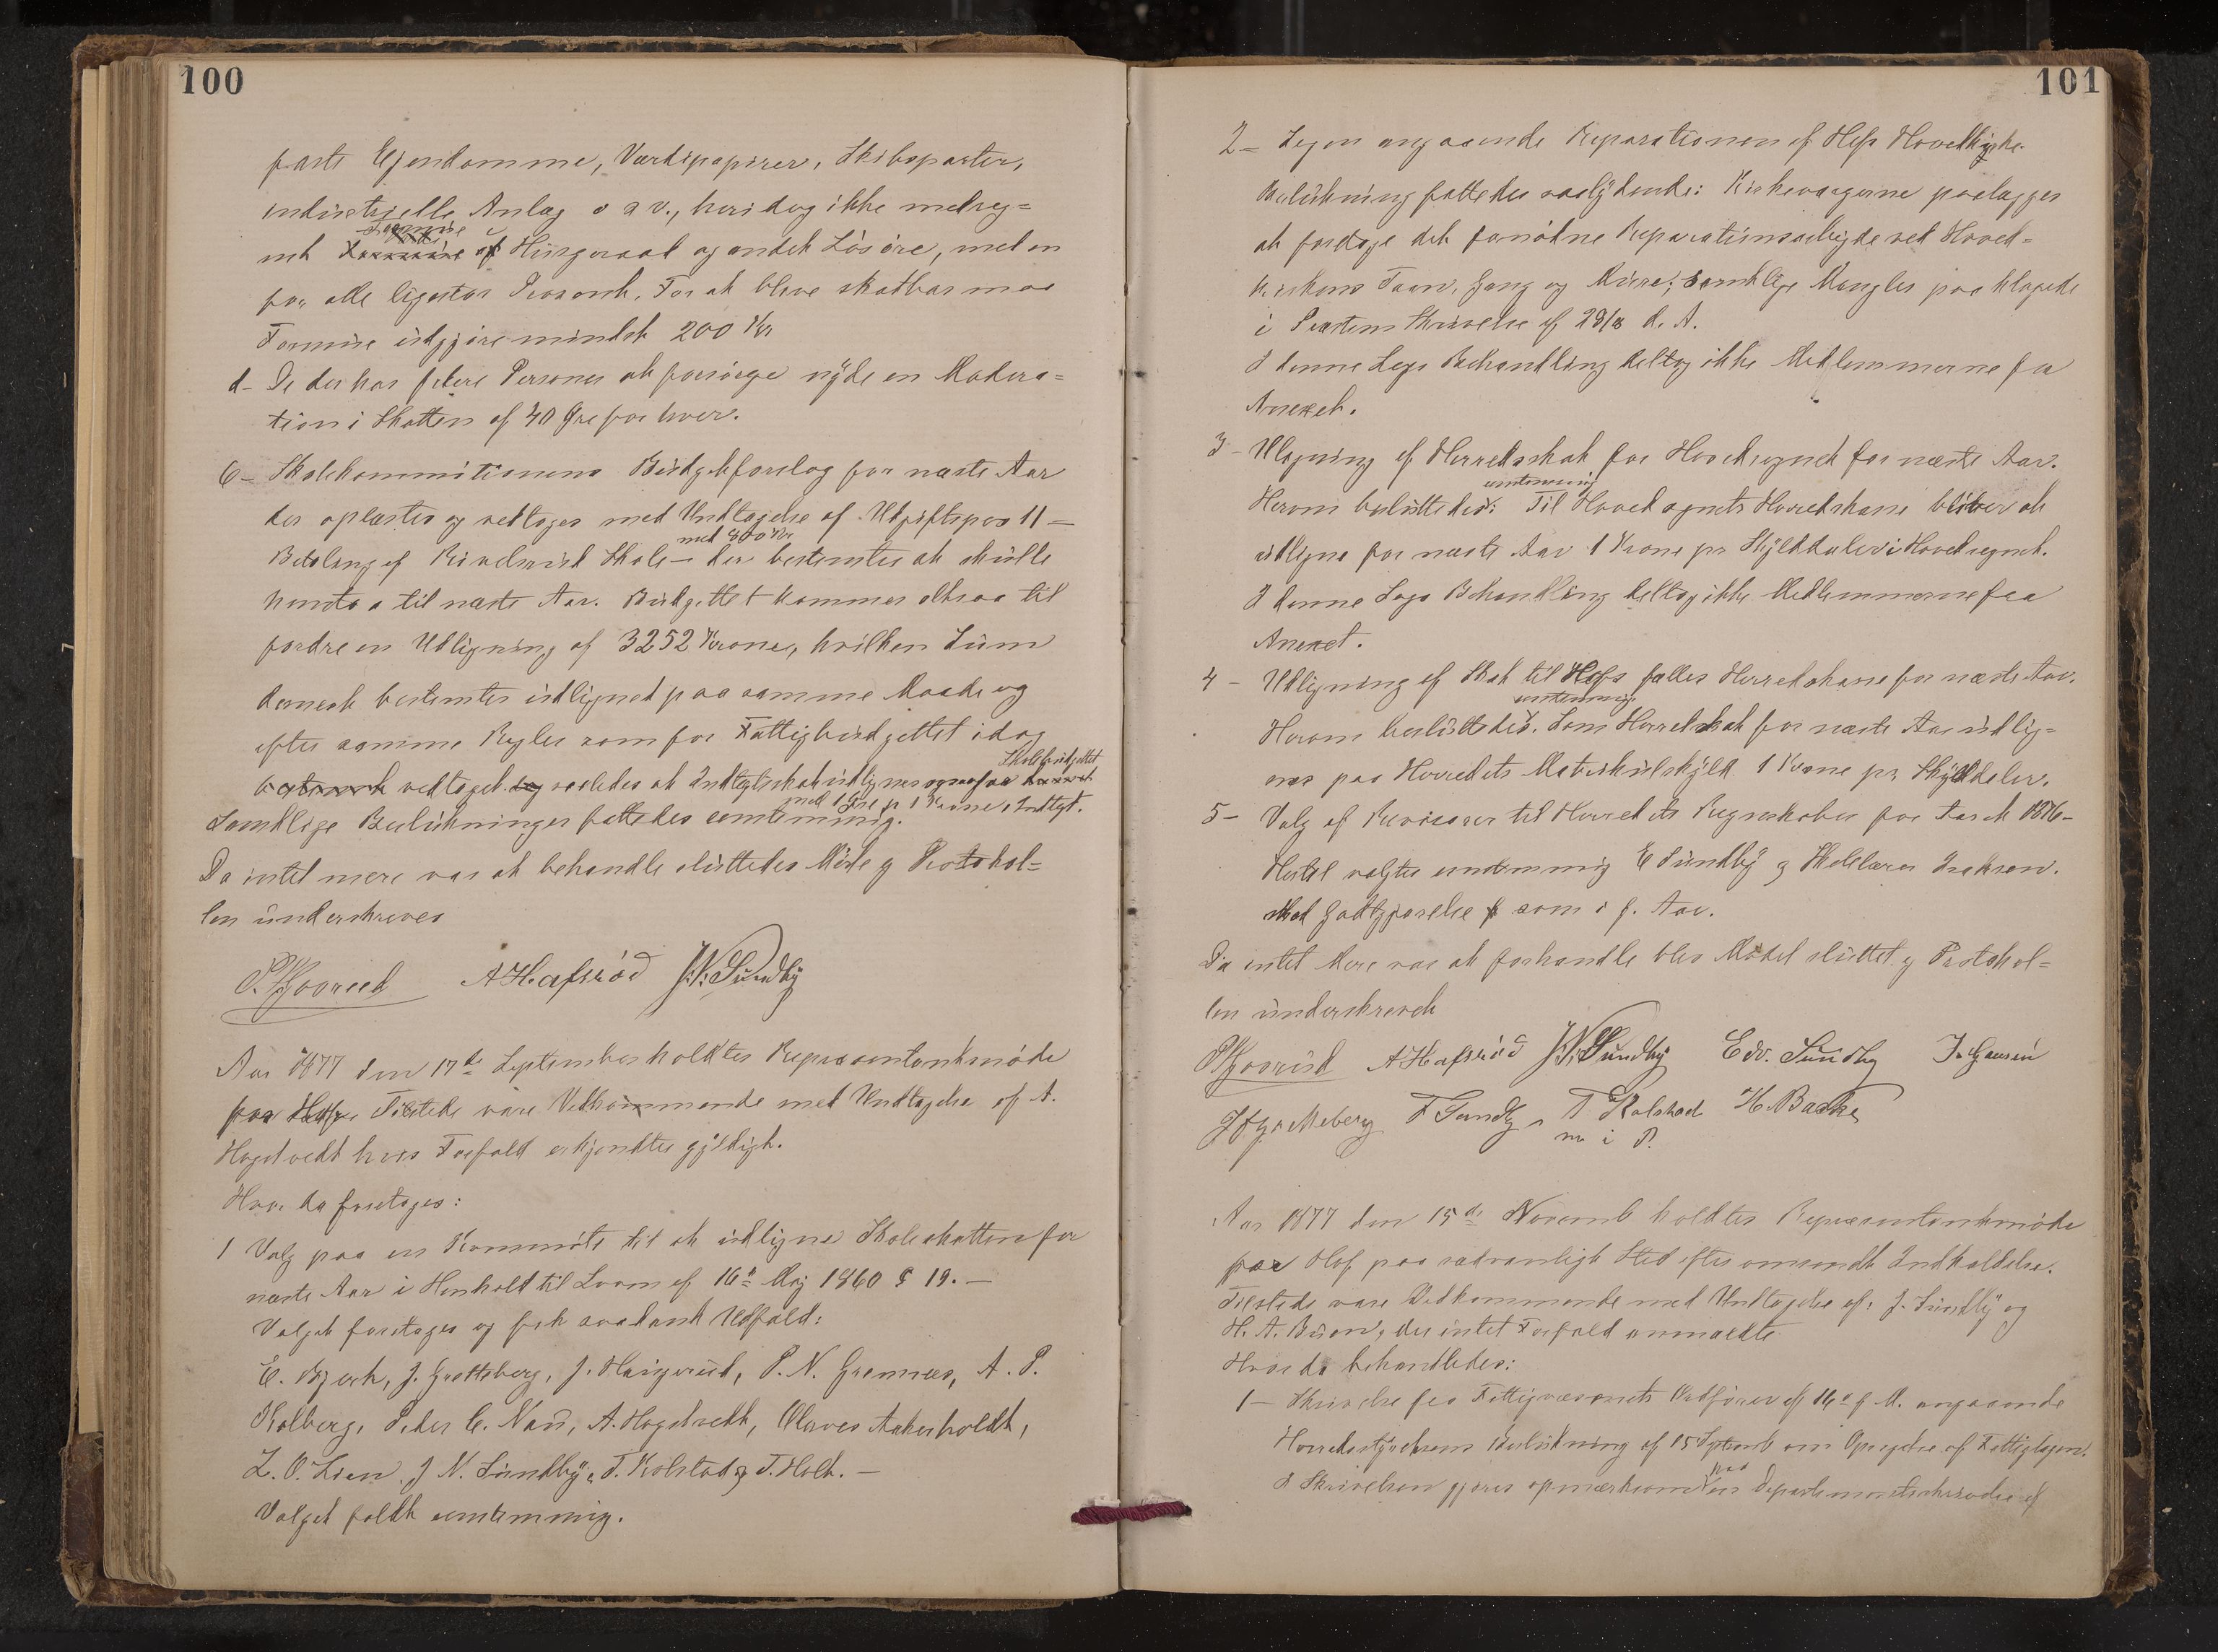 100
faste Ejendomme, Værdipapirer, Skibsparter,
industrielle Anlæg o s v., heri dog ikke medreg-
net Formue i Husgeraad og andet Løsøre, med en
for alle ligestor Procent. For at blive skatbar maa
Formue udgjøre mindst 200 Kr
d- De der har flere Personer at forsørge nyde en Modera-
tion i Skatten af 40 Øre for hver.
6- Skolekommitionens Budgetforslag for næste Aar
der oplæstes og vedtoges med Undtagelse af Udgiftspos 11 -
med 800 Kr
Betaling af Skole - der bestemtes at skulle
henstaa til næste Aar. Budgettet kommer altsaa til
fordre en Udligning af 3252 Kroner, hvilken Sum
dernest bestemtes udlignet paa samme Maade og
efter samme Regler som for Fattigbudgettet idag
Skolebudgettet
vedtaget. saaledes at Indtægtsskat udlignes ogsaa for
med 1 Øre pr 1 Krone i Indtægt.
Samtlige Beslutninger fattedes eenstemmig.
Da intet mere var at behandle sluttedes Møde og Protokol-
len underskreves
A Hafsrød J. N. Sundby
Aar 1877 den 17de September holdtes Repræsentantmøde
paa Hof. Tilstede vare Vedkommende med Undtagelse af A.
Hogstvedt hvis Forfald erkjendtes gyldigt.
Hvor da foretoges:
1 Valg paa en Kommité til at udligne Skoleskatten for
næste Aar i Henhold til Loven af 16de Maj 1860 § 19. -
Valget foretoges og fik saadant Udfald:
E. Bjerk, J. Grettsberg, J. Haugerud, P. N. Grennes, A. P.
Kolberg, Peder C. Nau, A. Hogstvedt, Olaves Aakerholdt,
L. O. Lien, J N. Sundby, T. Kolstad og T. Holt. -
Valget faldt eenstemmig.
101
2- Sagen angaaende Reparationen af Hofs Hovedkirke.
Beslutning fattedes saalydende: Kirkeværgerne paalægges
at foretage det fornødne Reparationsarbejde ved Hoved-
kirkens Taarn, Gang og Mure; samtlige Mangler paaklagede
i Præstens Skrivelse af 28/8 d. A.
I denne Sags Behandling deltog ikke Medlemmerne fra
Annexet.
3- Udligning af Herredsskat for Hovedsognet for næste Aar.
eenstemmig
Herom besluttedes: Til Hovedsognets Herredskasse bliver at
udligne for næste Aar 1 Krone pr Skylddaler i Hovedsognet.
I denne Sags Behandling deltog ikke Medlemmerne fra
Anexet.
4- Udligning af Skat til Hofs fælles Herredskasse for næste Aar.
eenstemmig
Herom besluttedes. Som Herredskat for næste Aar udlig-
nes paa Herredets Matrikulskyld 1 Krone pr Skylddaler.
5- Valg af Revisorer til Herredets Regnskaber for Aaret 1876-
Hertil valgtes eenstemmig E Sundby og Skolelærer Isaksen.
Med Godtgjørelse som i f. Aar.
Da intet Mere var at forhandle blev Mødet sluttet og Protokol-
len underskrevet
A Hafsrød J. N. Sundby Edv. Sundby J. Hansen
F Sundby T Kolstad H. Bakke
m i P.
Aar 1877 den 15de Novemb holdtes Repræsentantmøde
paa Hof paa sædvanligt Sted efter omsendt Indkaldelse.
Tilstede vare Vedkommende med Undtagelse af: J. Sundby og
H. A. Buen, der intet Forfald anmældte
Hvor da behandledes:
1- Skrivelse fra Fattigvæsenets Ordfører af 16de f M. angaaende
Herredsstyrelsens Beslutning af 15 Septemb om Opsigelse af Fattiglægen.
paa
I Skrivelsen gjøres opmærksom en Departementsskrivelse af